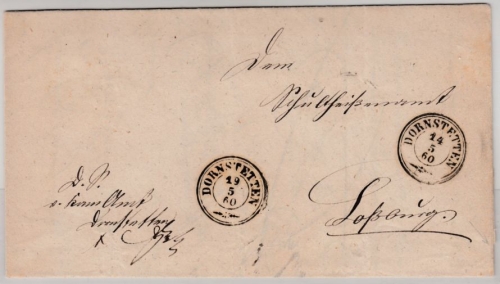 Dem
Schultheißenamt
DORNSTETTEN
14
5
60
Loßburg.
D. S.
Dornstetten
DORNSTETTEN
19
5
60